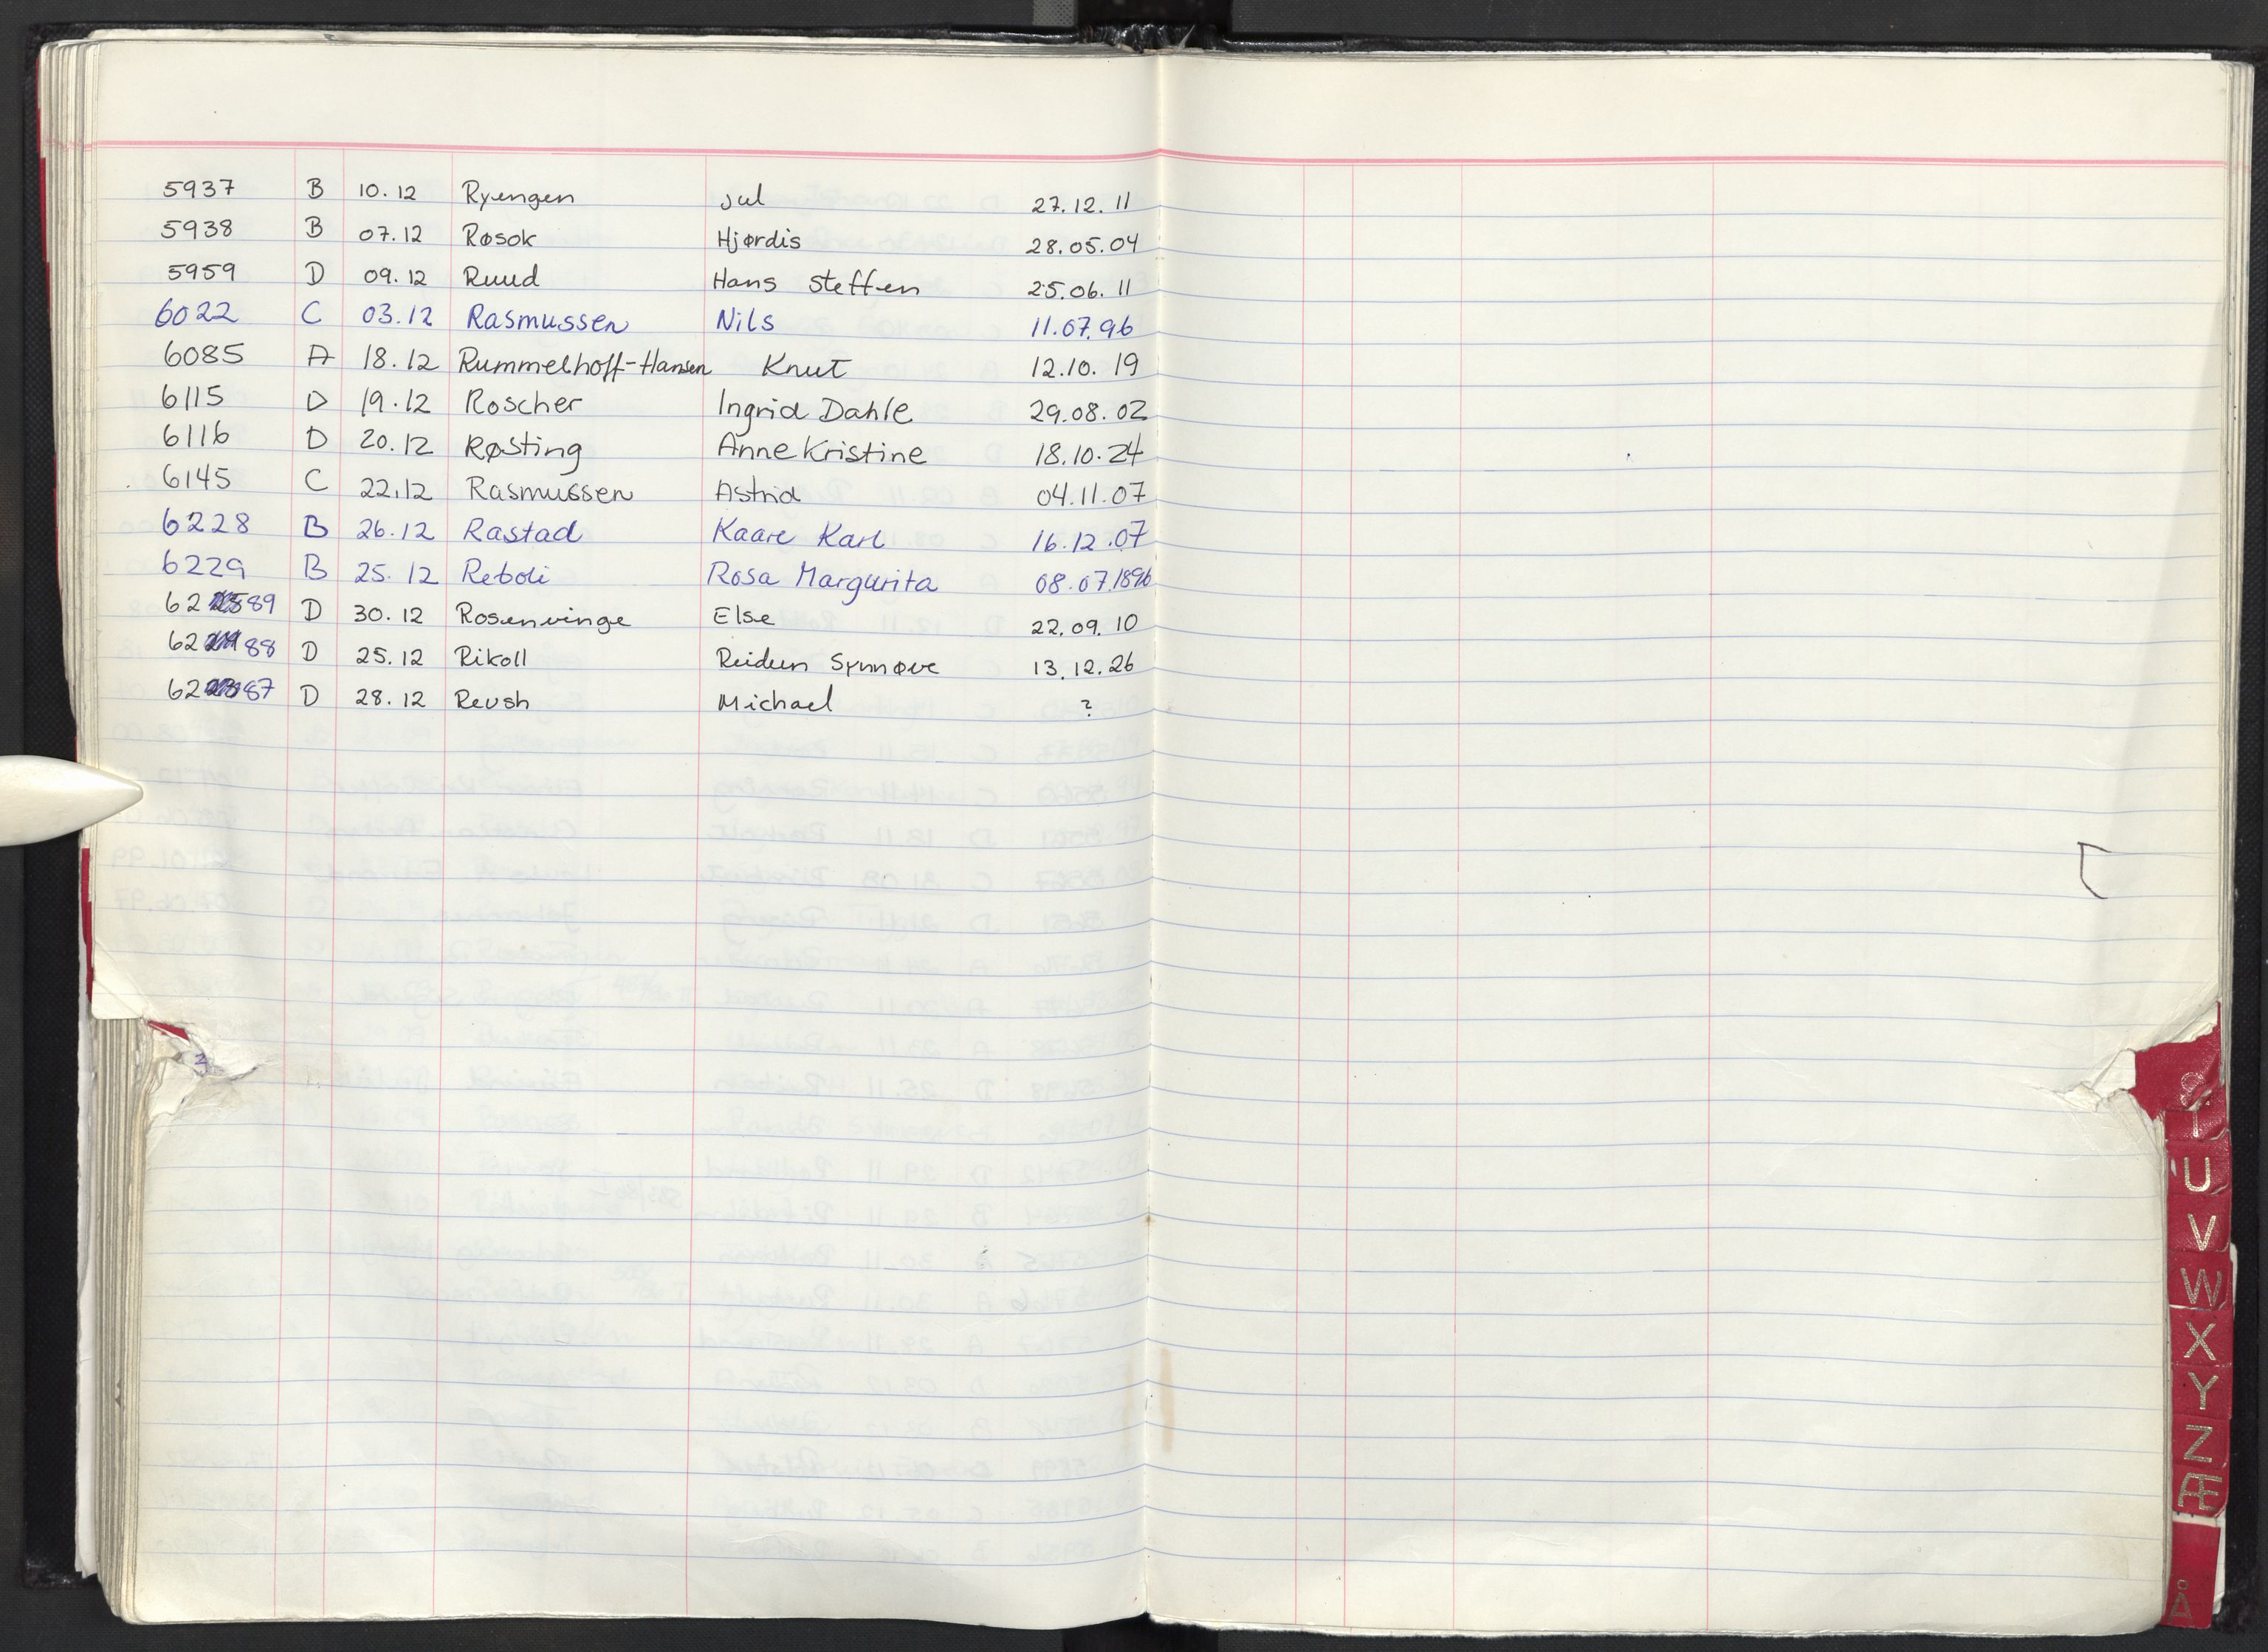 5937 B 10.12 Ryengen Jul 27.12.11
5938 B 07.12 Røsok Hjørdis 28.05.04
5959 D 09.12 Ruud Hans Steffen 25.06.11
6022 C 03.12 Rasmussen Nils 11.07.96
6085 A 18.12 Rummelhoff-Hansen Knut 12.10.19
6115 D 19.12 Roscher Ingrid Dahle 29.08.02
6116 D 20.12 Røsting Anne Kristine 18.10.24
6145 C 22.12 Rasmussen Astrid 04.11.07
6228 B 26.12 Rastad Kaare Karl 16.12.07
6229 B 25.12 Reboli Rosa Margarita 08.07.1896
6289 D 30.12 Rosenvinge Else 22.09.10
6288 D 25.12 Rikoll Reidun Synnøve 13.12.26
6287 D 28.12 Reush Michael ?
3
U
V
W
X
Y
Z
Æ
Å